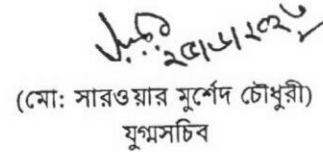 ২৫/৬/২০২৩
(মো: সারওয়ার মুর্শেদ চৌধুরী)
যুগ্মসচিব